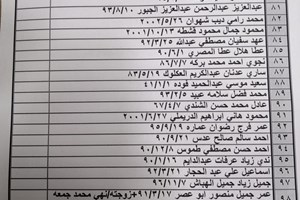 عبدالعزيز عبدالرحمن عبدالعزيز الجبور ٩٣/٨/١٠
٨٢ محمد رامي ديب شهوان ٢٠٠٢/٥/٢٦
٨٣ محمود جمال محمود قشطه ٢٠٠١/١٠/١٣
٨٤ عهد سفيان مصطفي عبدالله ٩٢/٣/٢٥
٨٥ عطا هلال عطا المصري ٩٠/٦/١
٨٦ نجوي احمد محمد بركه ٨٦/٧/٧
٨٧ ساري عدنان عبدالكريم العكلوك ٨٣/٥/١٩
٨٨ محمد موسي الحميده ٤١/١/١
٨٩ سعيد فضل سلامه عبيد ٩٣/٢/٥
٩٠ عادل محمد حسن الشندي ٦٧/٤/٧
٩١ محمود هاني ابراهيم الدريملي ٢٠٠١/٦/٢٧
٩٢ عمر فرج رضوان عماره ٩٥/٩/١٩
٩٣ احمد سالم صالح عدس ٩٠/٩/٢١
٩٤ احمد حسن مصطفي طموس ٩٠/١٢/٨
٩٥ ندي زياد عرفات عبدالدايم ٩٠/١/١٦
٩٦ اسماعيل علي عبد الحجار ٩٢/٣/٢
٩٧ جميل زياد جميل الهباش ٩٦/١/٧
٩٨ عمر جميل منصور ابو عصر ٩١/٣/١٧+زوجته/نهي محمد جمعه